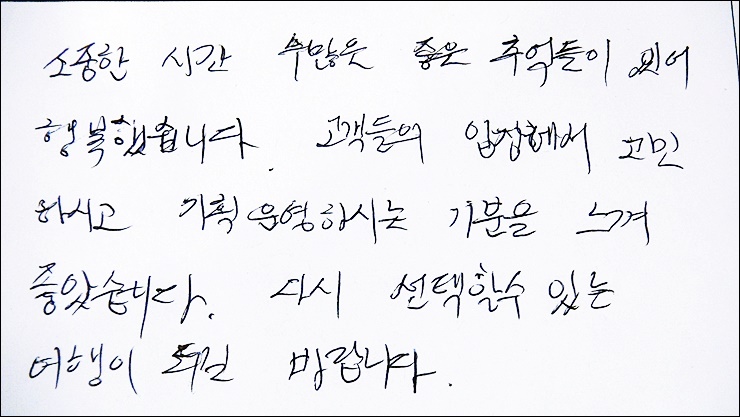 소중한 시간 수많은 좋은 추억들이 있어
행복했습니다. 고객들의 입장에서 고민
하시고 기획 운영하시는 기분을 느껴
좋았습니다. 다시 선택할수 있는
여행이 되길 바랍니다.